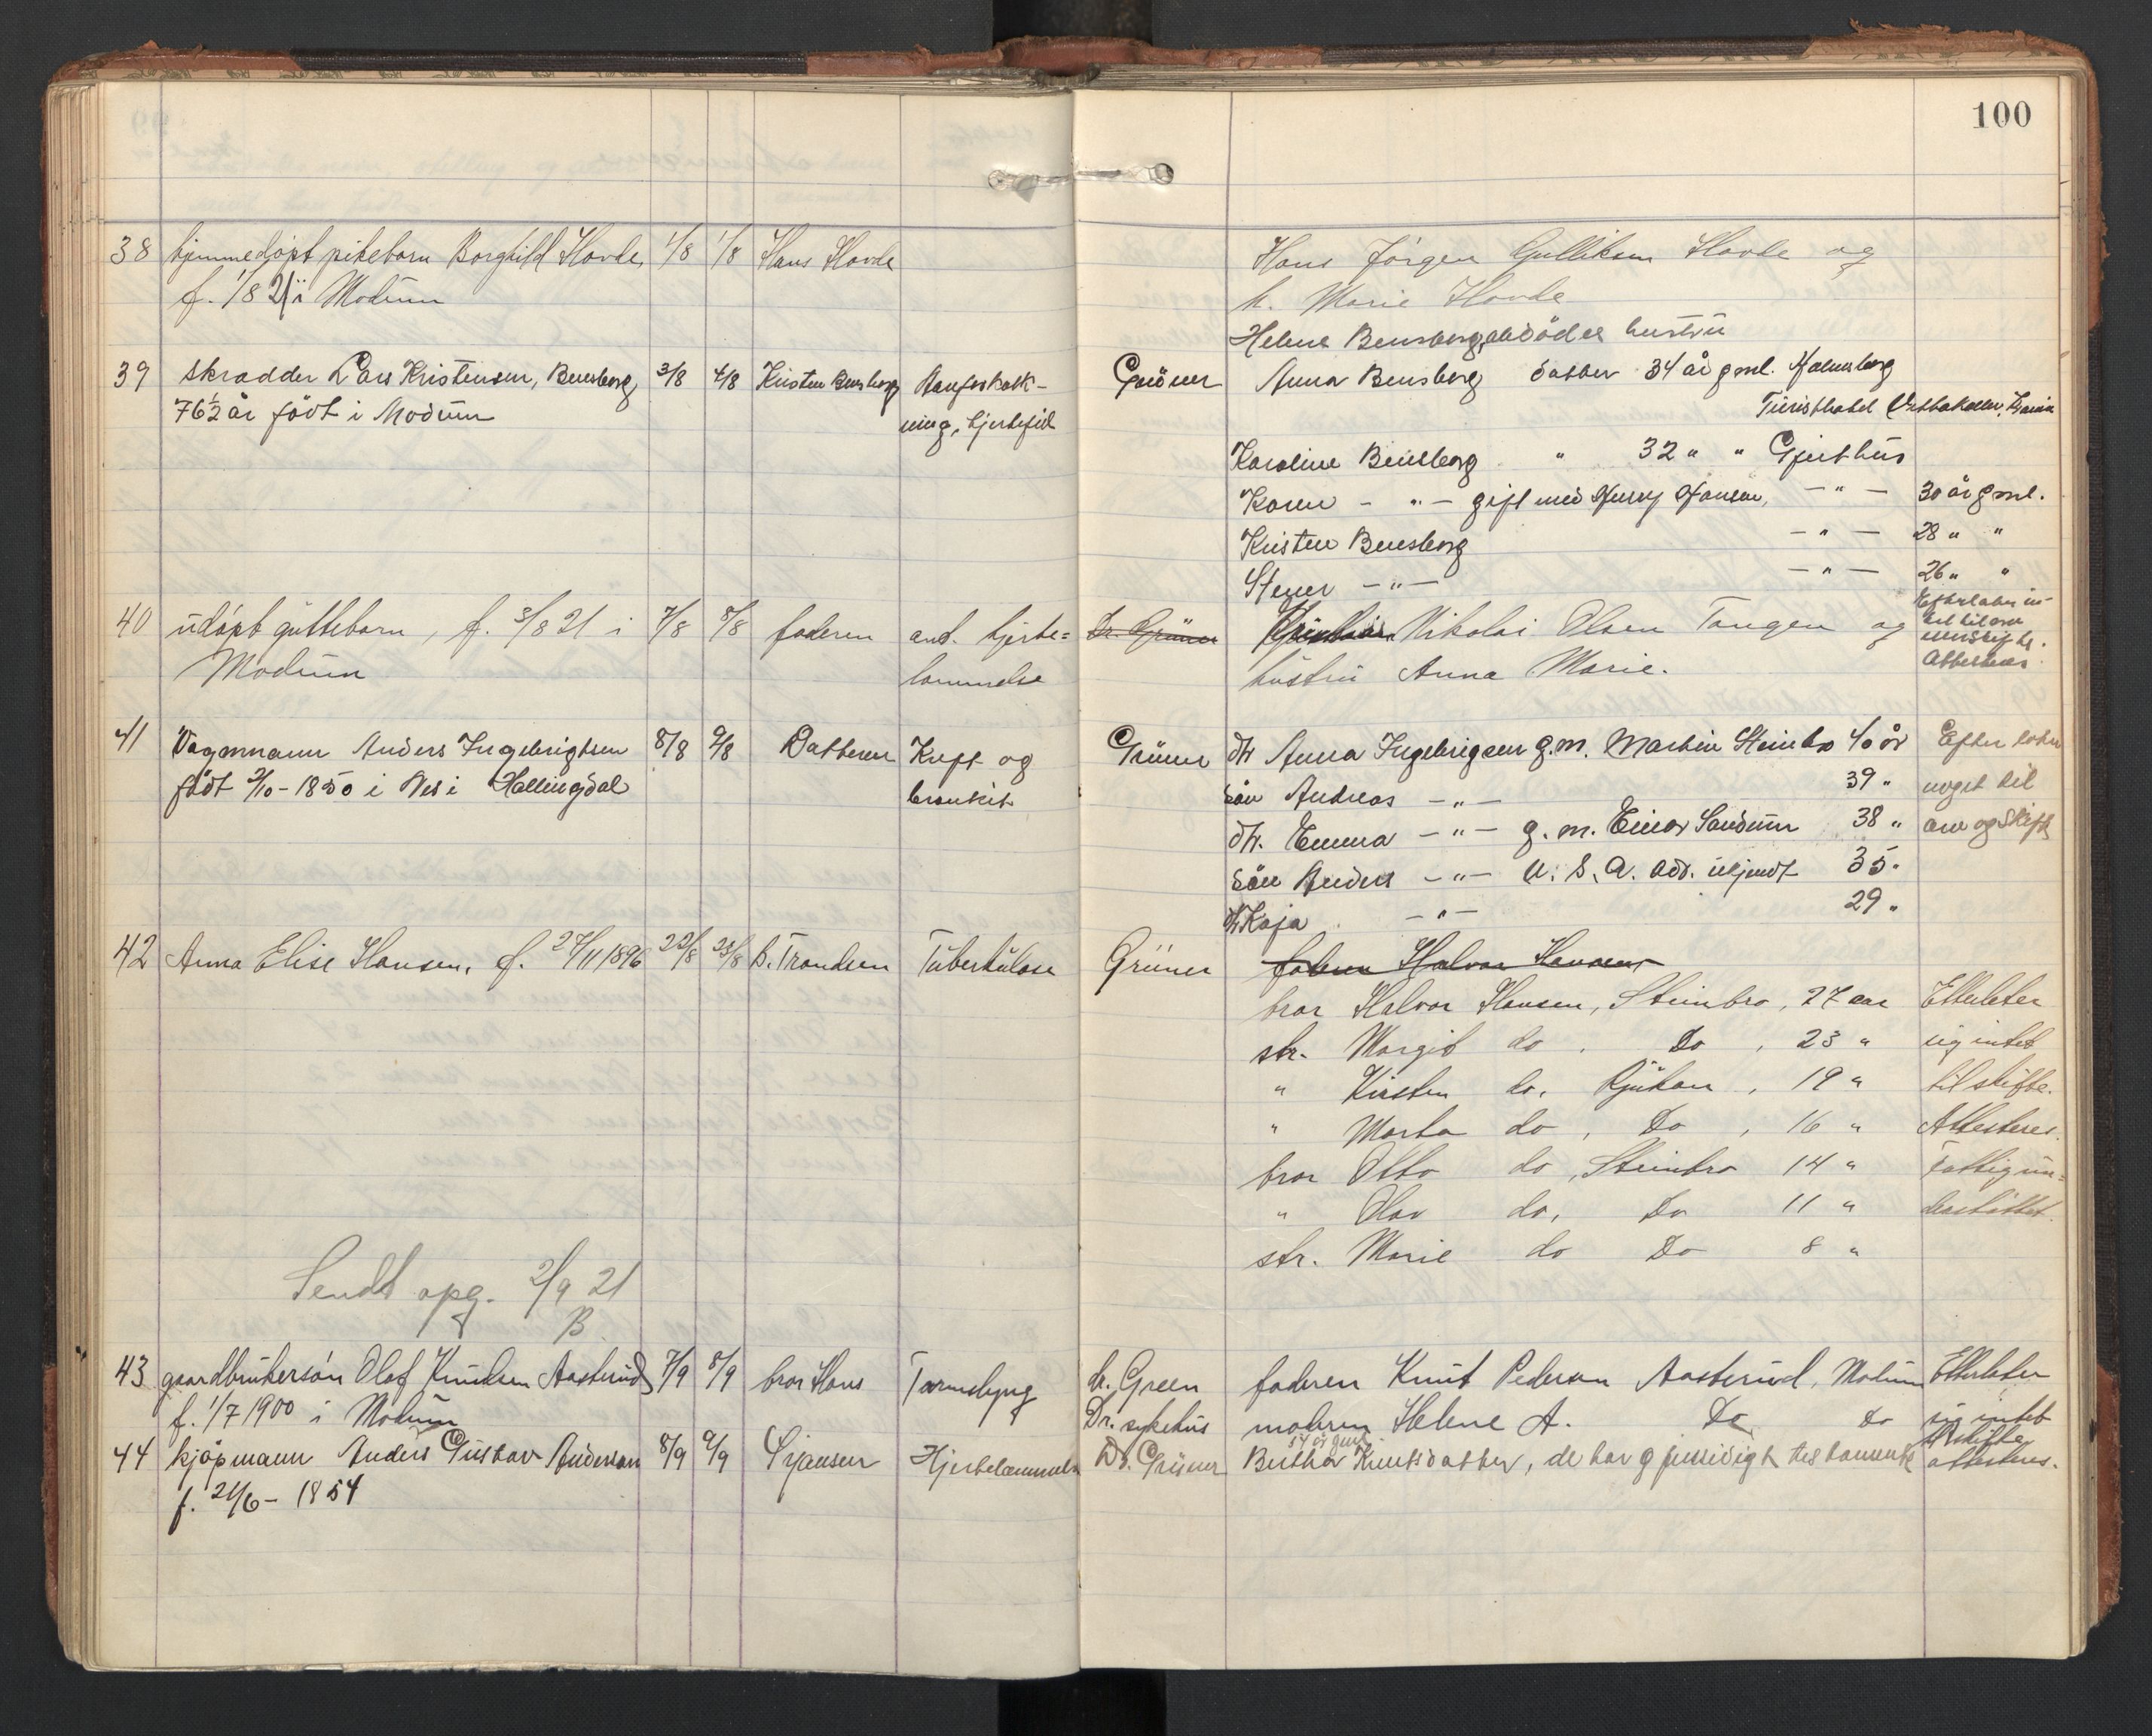 100
38 hjemmedøpt pikebarn Borghild Hovde, 1/8 1/8 Hans Hovde
f. 1/8 21 i Modum
Hans Jørgen Gulliksen Hovde og
h. Marie Hovde
Helene Bensberg, avdødes hustru
39 Skrædder Lars Kristensen, Bensberg, 3/8 4/8 Kristen Bensberg Aareforkalk-
76½ år født i Modum ning, hjertefeil
Grüner Anna Bensberg datter 34 år gml. Holmsberg
Turisthotel
Karoline Bensberg " 32 " " Gjethus
Karen - " - gift med Henry Hansen, - " - 30 år gml.
Kristen Bensberg - " - 28 " "
Stener - " - - " - 26 " "
40 udøpt guttebarn, f. 3/8 21 i 7/8 8/8 faderen ant. hjerte=
Modum lammelse
Dr. Grüner Nikolai Olsen Tangen og
hustru Anna Marie.
Efterlater in-
tet til arv
eller skifte.
Attesteres
41 Vognmann Anders Ingebrigtsen 8/8 9/8 Datteren Kreft og
født 2/10-1850 i Nes i Hallingdal bronkit
Grüner dtr Anna Ingebrigsen g.m. Martin Steinbro 40 år Efterlater
søn Andreas - " - 39 " noget til
dtr. Emma - " - g.m. Einar Sandum 38 " arv og skifte
søn Anders - " - U.S.A. adr. ukjendt 35 "
dtr Kaja - " - 29 "
42 Anna Elise Hansen, f. 27/11 1896 22/8 23/8 B. Trondsen Tuberkulose
Grüner faderen Halvor Hansen
bror Halvor Hansen, Steinbro, 27 aar Efterlater
str. Margit do, Do, 23 " sig intet
" Kirsten do, Rjukan, 19 " til skifte.
" Marta do, Do, 16 " Attesteres.
bror Otto do, Steinbro 14 " Fattigun=
" Olav do, Do 11 " derstøttet.
str. Marie do Do 8 "
Sendt opg. 2/9 21
B
43 gaardbrukersøn Olaf Knudsen Aasterud 7/9 8/9 bror Hans Tarmslyng
f. 1/7 1900 i Modum
dr. Green faderen Knut Pedersen Aasterud, Modum Efterlater
Dr. sykehus moderen Helene A. Do Do sig intet
til skifte
attesteres.
44 kjøpmann Anders Gustav Andersen 8/9 9/9 Ørjansen Hjertelammelse
f. 21/6 - 1854
Dr. Grüner Berthe Knutsdatter, de har gjensidigt testamente
54 år gml.